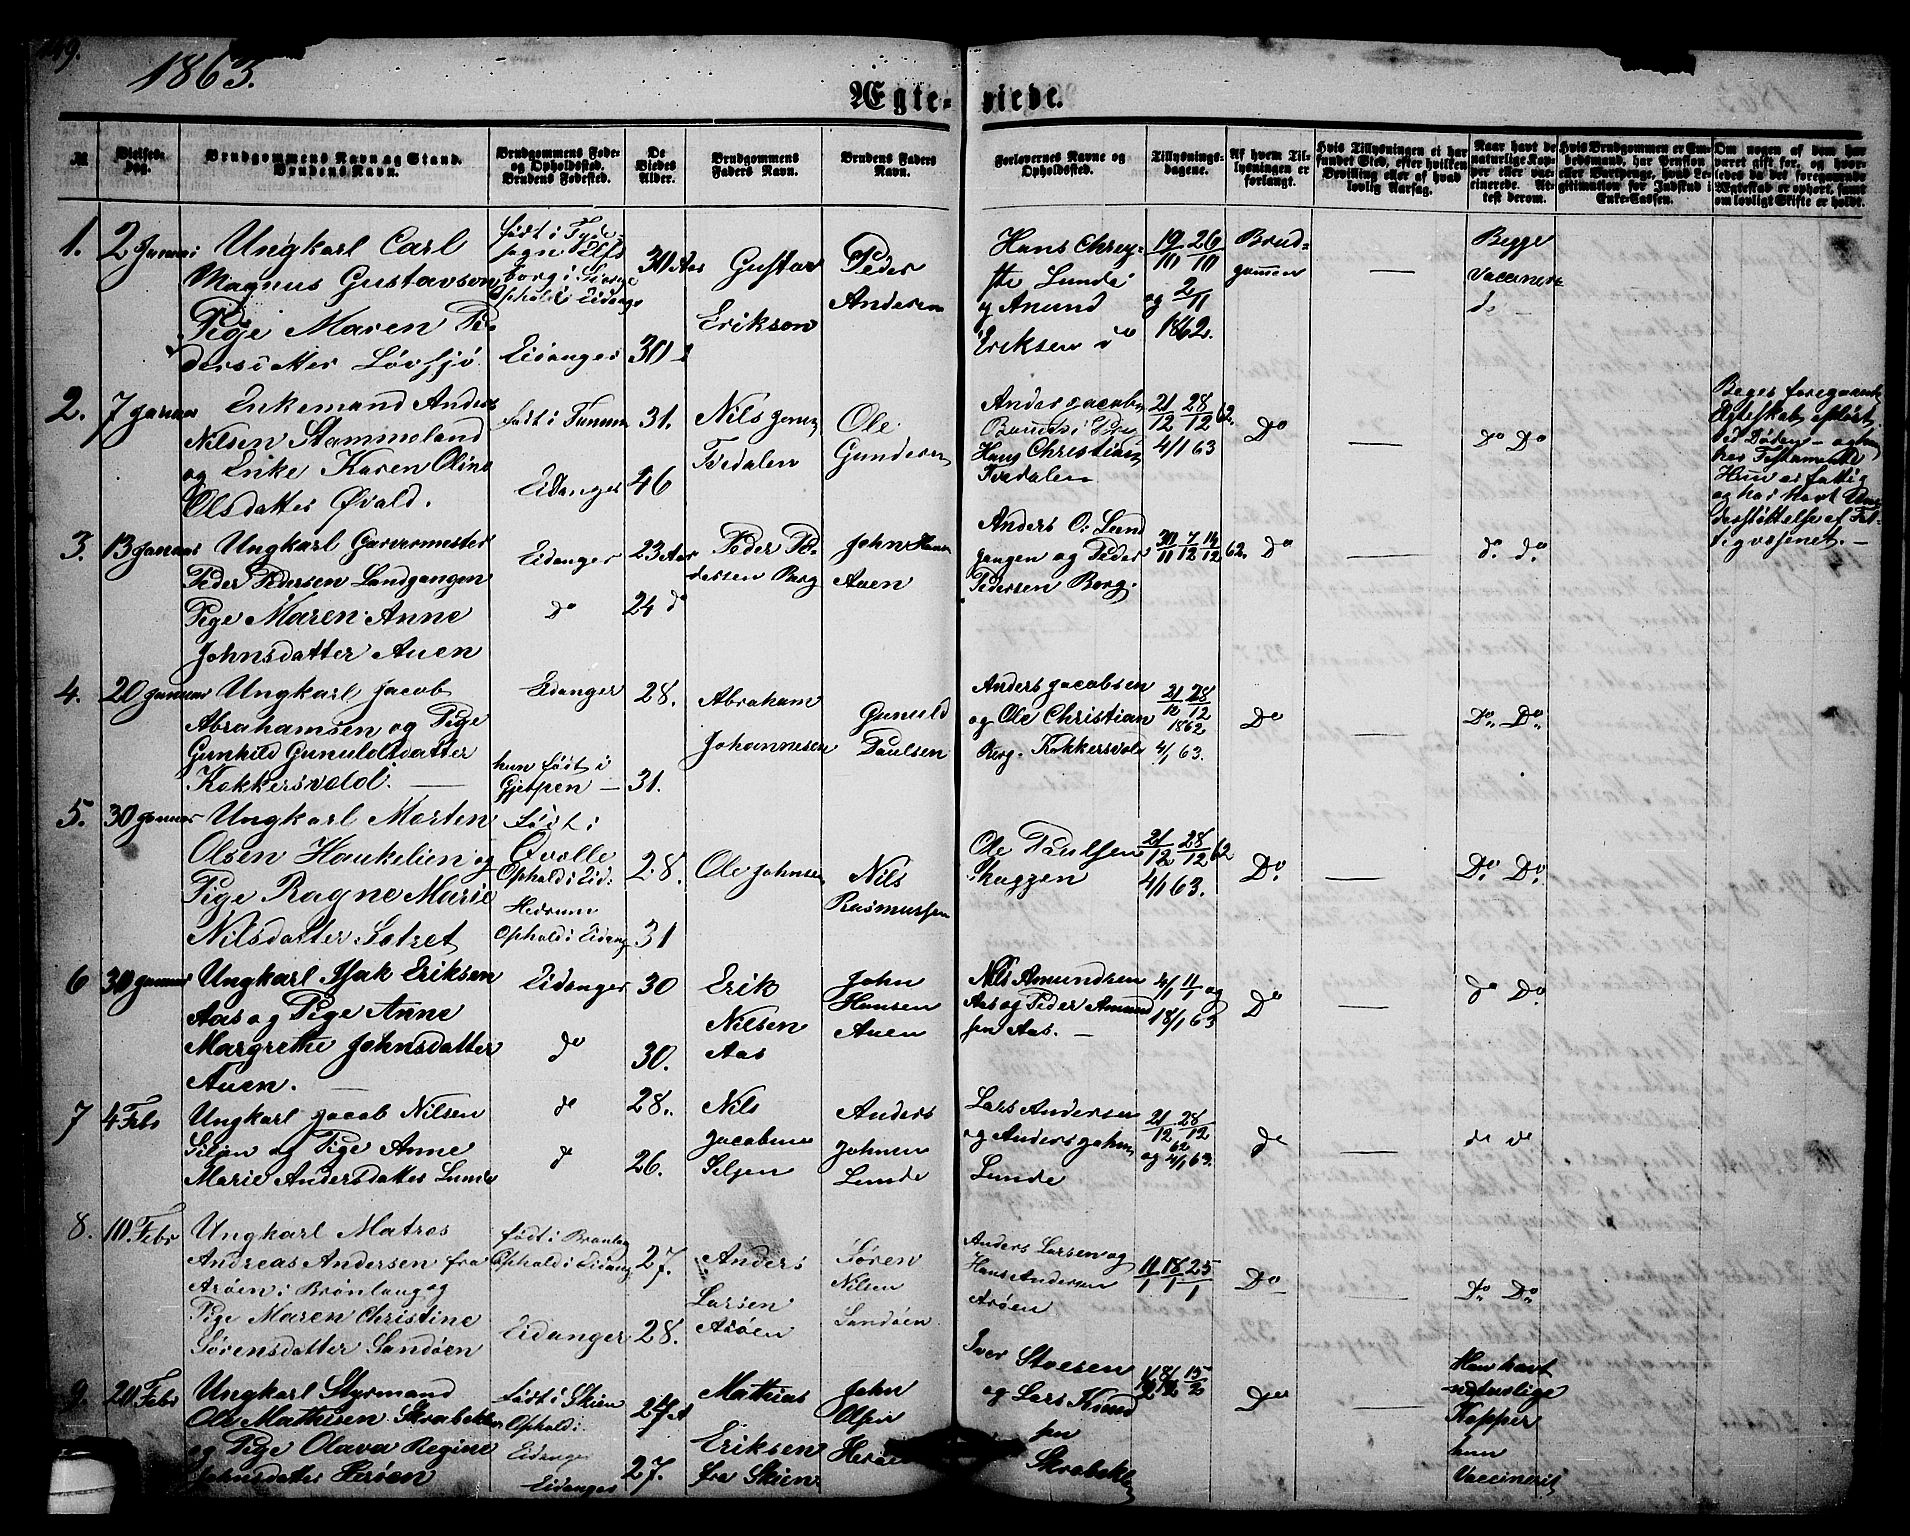 149.
1863.
Ægte-viede.
№
Vielses-dag.
Brudgommens Navn og Stand.
Brudens Navn.
Brudgommens Føde-
og Opholdssted.
Brudens Fødested.
De
Viedes
Alder.
Brudgommens
Faders Navn.
Brudens Faders
Navn.
Forlovernes Navne og
Opholdssted.
Tillysnings-
dagene.
Af hvem Til-
lysningen er
forlangt.
Hvis Tillysningen ei har
fundet Sted, efter hvilken
Bevilling eller af hvad
lovlig Aarsag.
Naar havt de
naturlige Kop-
per eller vac-
cinerede. At-
test derom.
Hvis Brudgommen er Em-
bedsmand, har Pension
eller Vartpenge, hvad Le-
gitimation for Indskud i
Enke-Cassen.
Om nogen af dem har
været gift før, og hvor-
ledes da det foregaaende
Ægteskab er ophørt, samt
om lovligt Skifte er holdt.
1. 2 Januari
Ungkarl Carl
Magnus Gustavson
Pige Maren Pe-
dersdatter Løvsjø
født i
sogn Elfs
borg i Sverige
Ophold i Eidange
Eidanger
30 Aar
30 d
Gustav
Erikson
Peder
Andersen
Hans Chrey-
ste Lunde
og Anund
Eriksen do
19/10 26/10
og 2/11
1862.
Brud-
gommen
—
Begge
Vaccinere
de
2. 7 Januar
Enkemand Anders
Nilsen Stammeland
og Enke Karen Oline
Olsdatter Øvald.
født i Tanum
Eidanger
31.
46
Nils Jonsen
Tvedalen
Ole
Gundersen
Anders Jacobs
Hans Christian
Tvedalen
21/12 28/12 62.
4/1 63
Do
—
Do Do
Beges foregaaende
Egteskab opløst
ved Døden — og
har Testamente
Hun er fattig
og har havt Un-
derstøttelse af Fat-
tigvæsenet. —
3. 13 Januar
Ungkarl Garvermester
Peder Pedersen Landgangen
Pige Maren Anne
Johnsdatter Auen
Eidanger
do
23 Aar
24 do
Peder Pe-
dersen Borg
John Hansen
Auen
Anders O. Land
gangen og Peder
Pedersen Borg.
30/11 7/12 14/12 62.
do
—
do. do
4. 20 Januar
Ungkarl Jacob
Abrahamsen og Pige
Gunhild Gunuldsdatter
Kokkersvold. —
Eidanger
hun født i
Gjerpen —
28.
31.
Abraham
Johannesen
Gunuld
Paulsen
Anders Jacobsen
og Ole Christian
Berg. Kokkersvold
21/12 28/12
1862
4/1 63.
Do
—
Do. Do.
5. 30 Januar
Ungkarl Morten
Olsen Haukelien og
Pige Ragne Marie
Nilsdatter Sotret
Født i
Qvolle
Ophold i Eid:
Hedrum
Ophold i Eidang
28.
31
Ole Johnsen
Nils
Rasmussen
Ole Paulsen
Skuggen
21/12 28/12 62
4/1 63.
Do.
—
Do. Do.
6 30 Januar
Ungkarl Isak Eriksen
Aas og Pige Anne
Margrethe Johnsdatter
Auen. —
Eidanger
do
30
30.
Erik
Nilsen
Aas
John
Hansen
Auen
Nils Amundsen
Aas og Peder Amund
sen Aas. —
4/1 11/1 og
18/1 63
Do
—
do Do.
7 4 Febr
Ungkarl Jacob Nilsen
Siljan og Pige Anne
Marie Andersdatter Lunde
do
do
28.
26.
Nils
Jacobsen
Seljen
Anders
Johnsen
Lunde
Lars Andersen
og Anders John
Lunde
21/12 28/12
62
og 4/1 63.
do
—
do do
8. 10. Febr
Ungkarl Matros
Andreas Andersen fra
Arøen i Brønlang og
Pige Maren Christine
Sørensdatter Sandøen
født i Brønlang
Ophold i Eidang
Eidanger
27.
28.
Anders
Larsen
Arøen
Søren
Nilsen
Sandøen
Anders Larsen og
Hans Andersen
Arøen
11/1 18/1 25/1
Do
—
Do. Do.
9. 20 Febr
Ungkarl Styrmand
Ole Mathisen Skrabekl
og Pige Olava Regine
Johnsdatter Herøen
født i Skien
Ophold i
Eidanger
Eidanger
27 A
27.
Mathias
Eriksen
fra Skien
John
Olsen
Iver Stoesen
og Lars Knud
sen
Skrabekl
8/2 15/2
Do
—
Han havt
naturlige
Kopper
hun
Vaccineret